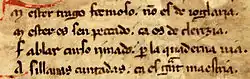 M ester trago fermoso. no es de ioglaria.
M ester es sen peccado. ca es de clerezia
F ablar curso rimado. p̲ la quaderna uia.
A sillauas cuntadas. ca es grãt maestria.